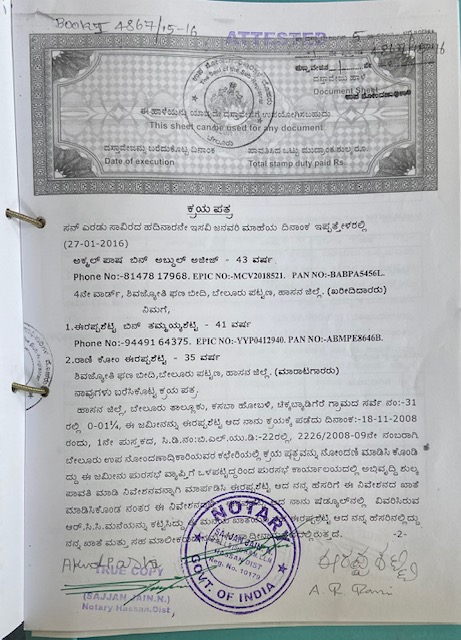 BOOK I 4867/15-16
ATTESTED
5
4867/15-16
ದಸ್ತಾವೇಜು ಹಾಳೆ
Document Sheet
ಉಪ ನೋಂದಣಾಧಿಕಾರಿ
ಈ ಹಾಳೆಯನ್ನು ಯಾವುದೇ ದಸ್ತಾವೇಜಿಗೆ ಉಪಯೋಗಿಸಬಹುದು
This sheet can be used for any document
ದಸ್ತಾವೇಜನ್ನು ಬರೆದುಕೊಟ್ಟ ದಿನಾಂಕ ಪಾವತಿಸಿದ ಒಟ್ಟು ಮುದ್ರಾಂಕ ಶುಲ್ಕ ರೂ.
Date of execution Total stamp duty paid Rs
ಕ್ರಯ ಪತ್ರ
ಸನ್ ಎರಡು ಸಾವಿರದ ಹದಿನಾರನೇ ಇಸವಿ ಜನವರಿ ಮಾಹೆಯ ದಿನಾಂಕ ಇಪ್ಪತ್ತೇಳರಲ್ಲಿ
(27-01-2016)
ಅಕ್ಮಲ್ ಪಾಷ ಬಿನ್ ಅಬ್ದುಲ್ ಅಜೀಜ್ - 43 ವರ್ಷ
Phone No:-81478 17968. EPIC NO:-MCV2018521. PAN NO:-BABPA5456L.
4ನೇ ವಾರ್ಡ್, ಶಿವಜ್ಯೋತಿ ಘಣ ಬೀದಿ, ಬೇಲೂರು ಪಟ್ಟಣ, ಹಾಸನ ಜಿಲ್ಲೆ. (ಖರೀದಿದಾರರು)
ನಿಮಗೆ,
1.ಈರಪ್ಪಶೆಟ್ಟಿ ಬಿನ್ ತಮ್ಮಯ್ಯಶೆಟ್ಟಿ - 41 ವರ್ಷ
Phone No:-94491 64375. EPIC NO:-YYP0412940. PAN NO:-ABMPE8646B.
2.ರಾಣಿ ಕೋಂ ಈರಪ್ಪಶೆಟ್ಟಿ - 35 ವರ್ಷ
ಶಿವಜ್ಯೋತಿ ಘಣ ಬೀದಿ,ಬೇಲೂರು ಪಟ್ಟಣ, ಹಾಸನ ಜಿಲ್ಲೆ. (ಮಾರಾಟಗಾರರು)
ನಾವುಗಳು ಬರೆಸಿಕೊಟ್ಟ ಕ್ರಯ ಪತ್ರ.
ಹಾಸನ ಜಿಲ್ಲೆ, ಬೇಲೂರು ತಾಲ್ಲೂಕು, ಕಸಬಾ ಹೋಬಳಿ, ಚಿಕ್ಕಬ್ಯಾಡಿಗೆರೆ ಗ್ರಾಮದ ಸರ್ವೆ ನಂ:-31
ರಲ್ಲಿ 0-01¼, ಈ ಜಮೀನನ್ನು ಈರಪ್ಪಶೆಟ್ಟಿ ಆದ ನಾನು ಕ್ರಯಕ್ಕೆ ಪಡೆದು ದಿನಾಂಕ:-18-11-2008
ರಂದು, 1ನೇ ಪುಸ್ತಕದ, ಸಿ.ಡಿ.ನಂ:ಬಿ.ಎಲ್.ಯು.ಡಿ:-22ರಲ್ಲಿ, 2226/2008-09ನೇ ನಂಬರಾಗಿ
ಬೇಲೂರು ಉಪ ನೋಂದಣಾಧಿಕಾರಿಯವರ ಕಛೇರಿಯಲ್ಲಿ ಕ್ರಯ ಪತ್ರವನ್ನು ನೋಂದಣಿ ಮಾಡಿಸಿ ಕೊಂಡಿ
ದ್ದು ಈ ಜಮೀನು ಪುರಸಭೆ ವ್ಯಾಪ್ತಿಗೆ ಒಳಪಟ್ಟಿದ್ದರಿಂದ ಪುರಸಭೆ ಕಾರ್ಯಾಲಯದಲ್ಲಿ ಅಭಿವೃದ್ಧಿ ಶುಲ್ಕ
ಪಾವತಿ ಮಾಡಿ ನಿವೇಶನವನ್ನಾಗಿ ಮಾರ್ಪಡಿಸಿ ಈರಪ್ಪಶೆಟ್ಟಿ ಆದ ನನ್ನ ಹೆಸರಿಗೆ ಈ ನಿವೇಶನದ ಖಾತೆ
ಮಾಡಿಸಿಕೊಂಡ ನಂತರ ಈ ನಿವೇಶನ ಆದ ನಾನು ಷೆಡ್ಯೂಲ್‌ನಲ್ಲಿ ವಿವರಿಸಿರುವ
ಆರ್.ಸಿ.ಸಿ.ಮನೆಯನ್ನು ಕಟ್ಟಿಸಿದ್ದು ಈ ಮನೆಯ ಖಾತೆ ಈರಪ್ಪಶೆಟ್ಟಿ ಆದ ನನ್ನ ಹೆಸರಿನಲ್ಲಿದ್ದು
ನನ್ನ ಖಾತೆ ಮತ್ತು ಸಹ ಮಾಲೀಕ -2-
NOTARY
SAJJAN JAIN.N.
HASSAN DIST
Reg. No. 10179
GOVT. OF INDIA
TRUE COPY
(SAJJAN JAIN.N.)
Notary Hassan.Dist,
ಈರಪ್ಪಶೆಟ್ಟಿ
A. R. Rani